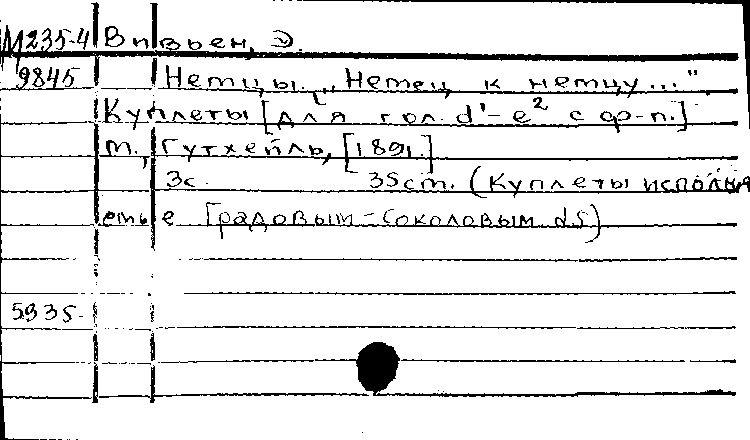 М235-4 Визьен, Э.
9845 Немцы. „Немец к немцу..."
Куплеты [для гол. d'-e² с ф-п.]
М., Гутхейль, [1891.]
3с. 35cm. (Куплеты исполня
емые Градовым-Соколовым
5935-